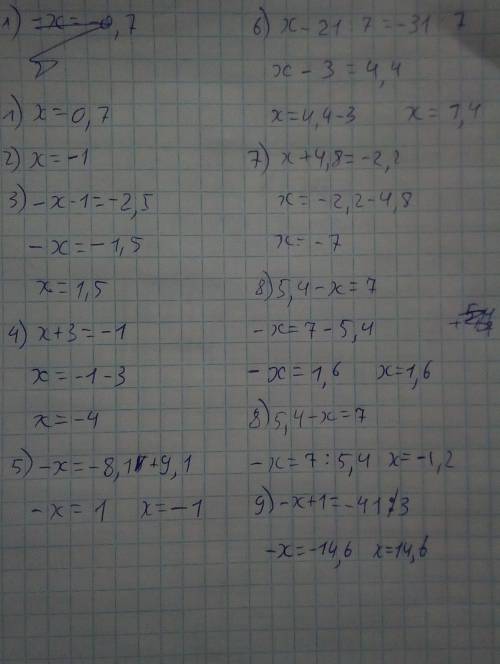 1) x = 0,7
2) x = -1
3) -x - 1 = -2,5
-x = -1,5
x = 1,5
4) x + 3 = -1
x = -1 - 3
x = -4
5) -x = -8,1 + 9,1
-x = 1 x = -1
6) x - 21 : 7 = -31 7
x - 3 = 4,4
x = 4,4 - 3 x = 1,4
7) x + 4,8 = -2,2
x = -2,2 - 4,8
x = -7
8) 5,4 - x = 7
-x = 7 - 5,4
-x = 1,6 x = 1,6
8) 5,4 - x = 7
-x = 7 : 5,4 x = -1,2
9) -x + 1 = -41 3
-x = -14,6 x = 14,6